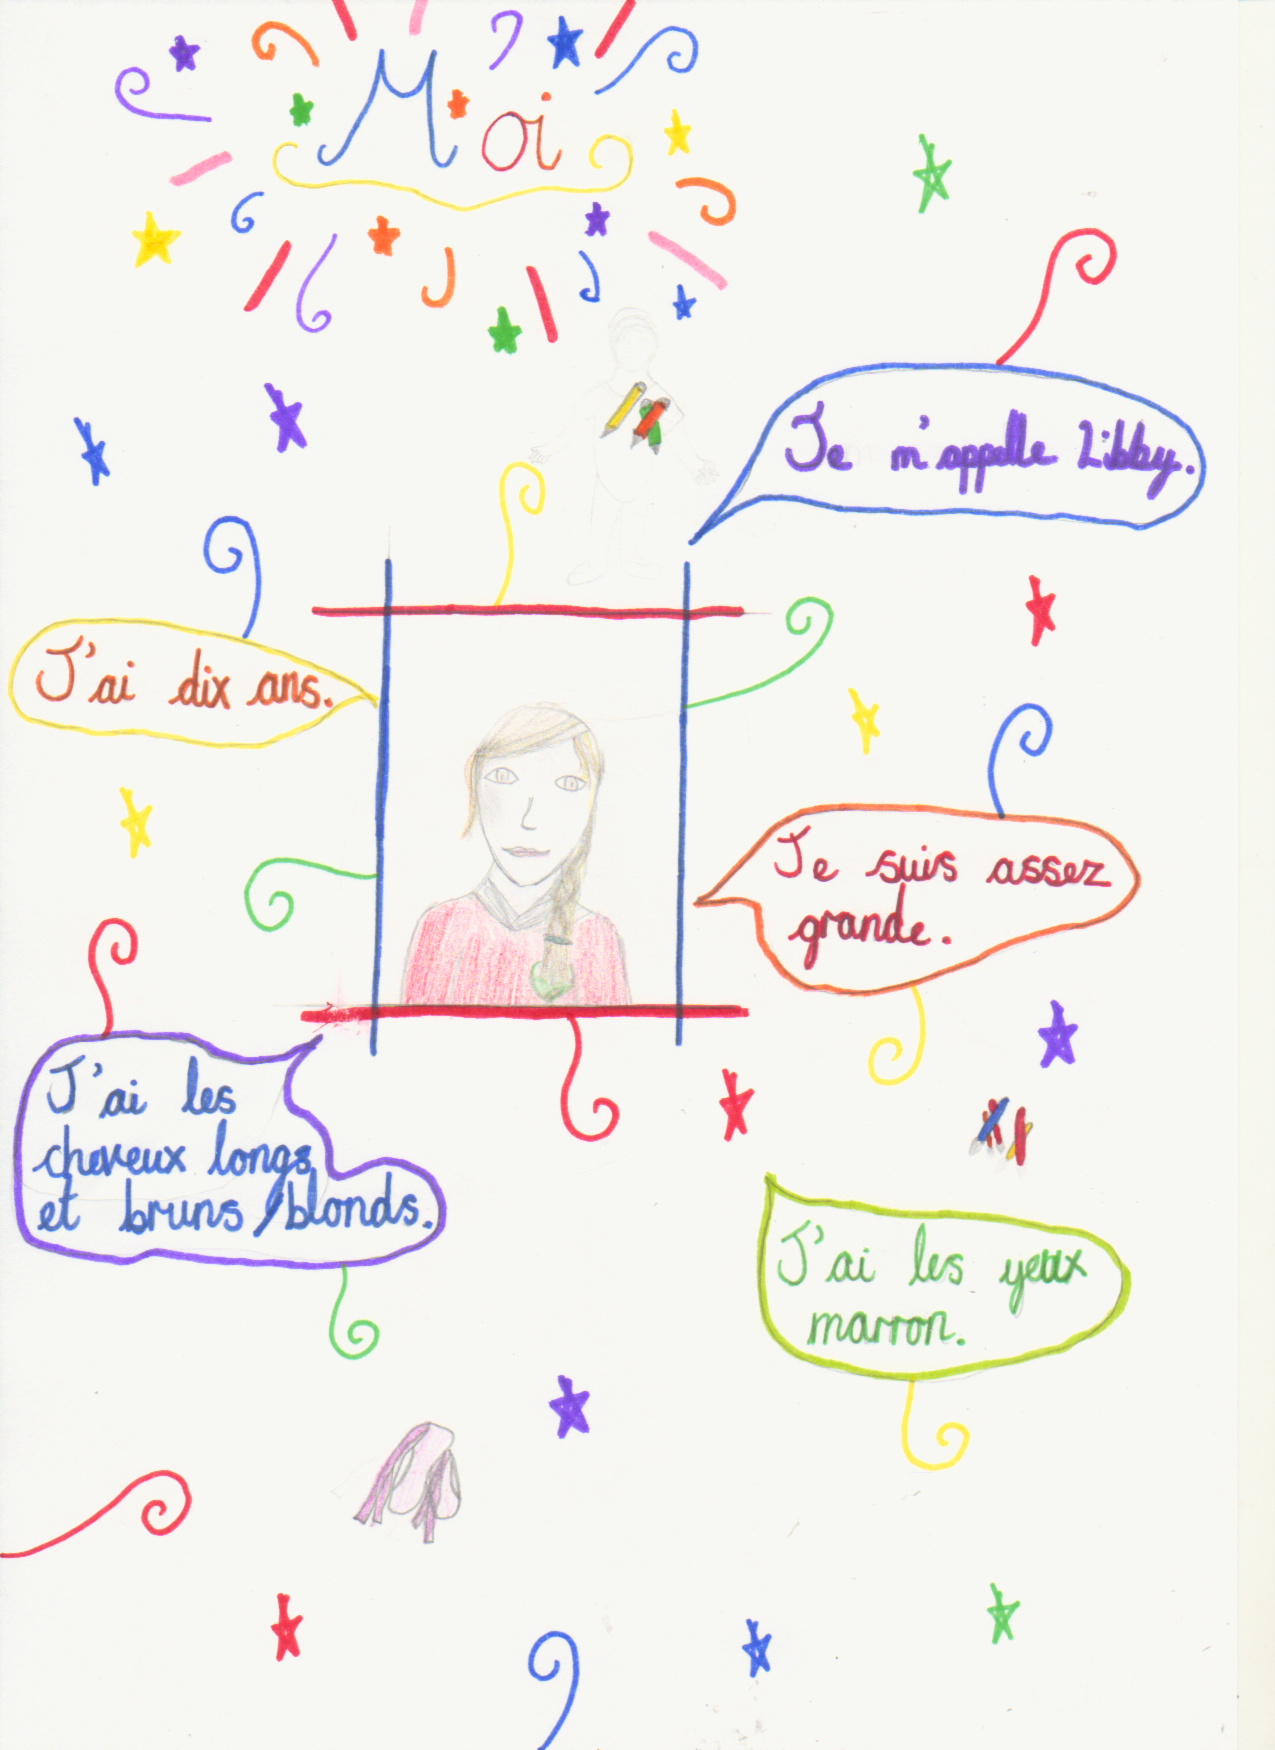 Moi
Je m'appelle Libby.
J'ai dix ans.
Je suis assez
grande.
J'ai les
cheveux longs
et bruns/blonds.
J'ai les yeux
marron.